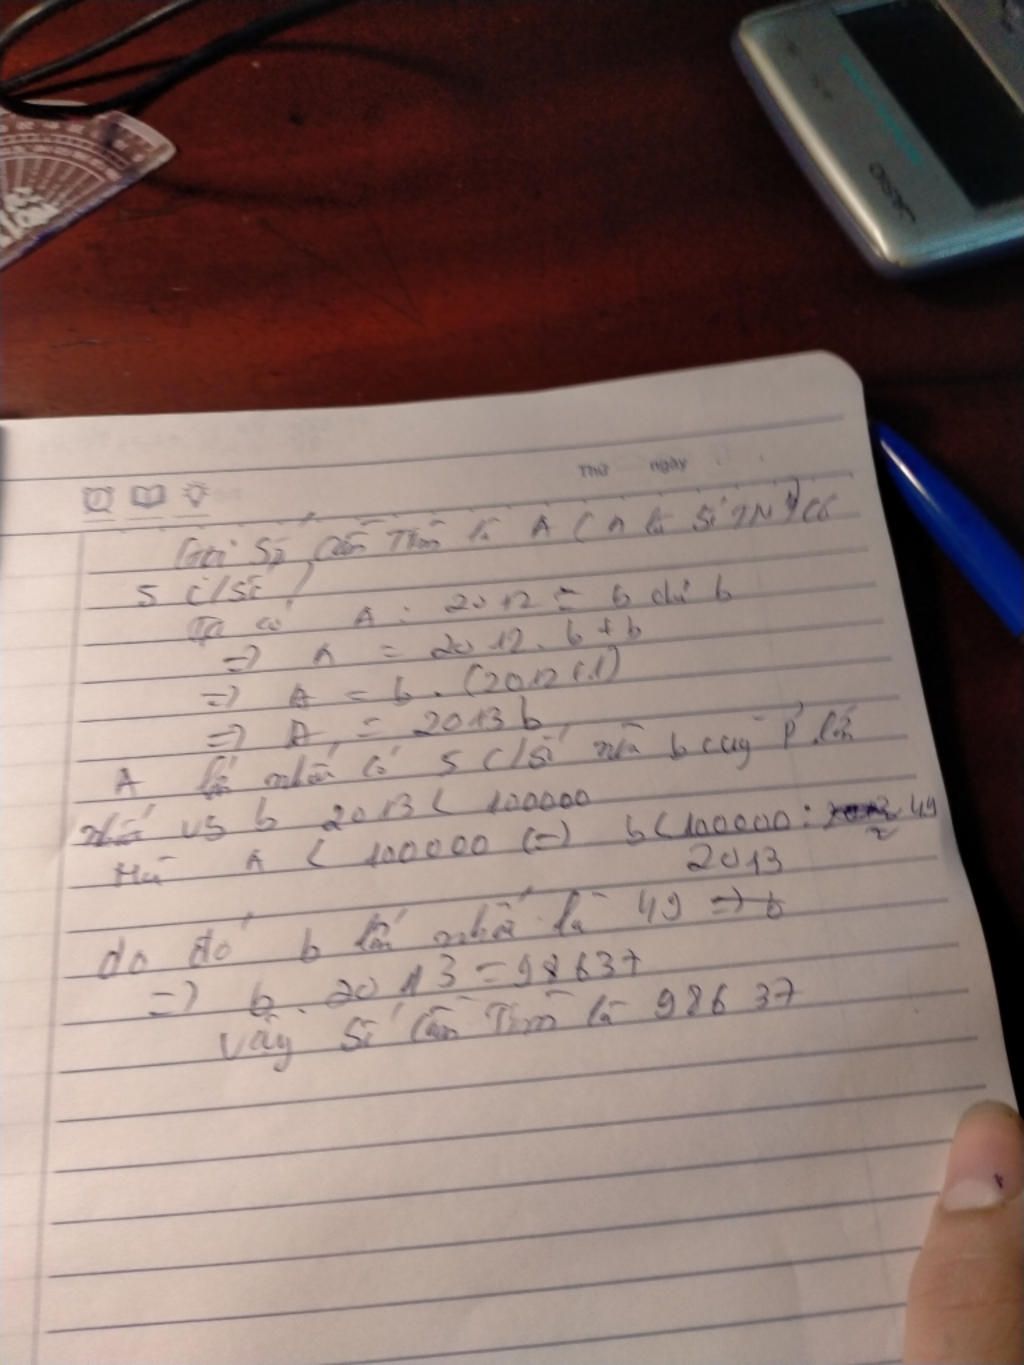 CASIO
Thứ ngày
Gọi Số Cần Tìm là A ( A là Số TN) Có
5 c/số )
Ta có A : 2012 = b dư b
=> A = 2012. b + b
=> A = b . (2012 + 1)
=> A = 2013 b
A lớn nhất có 5 c/số nên b cũng P lớn
nhất vs b 2013 < 100000
Mà A < 100000 (=) b < 100000 : 2013 ≈ 49
do đó b lớn nhất là 49 => b
=> b . 2013 = 98637
Vậy Số Cần Tìm là 98637